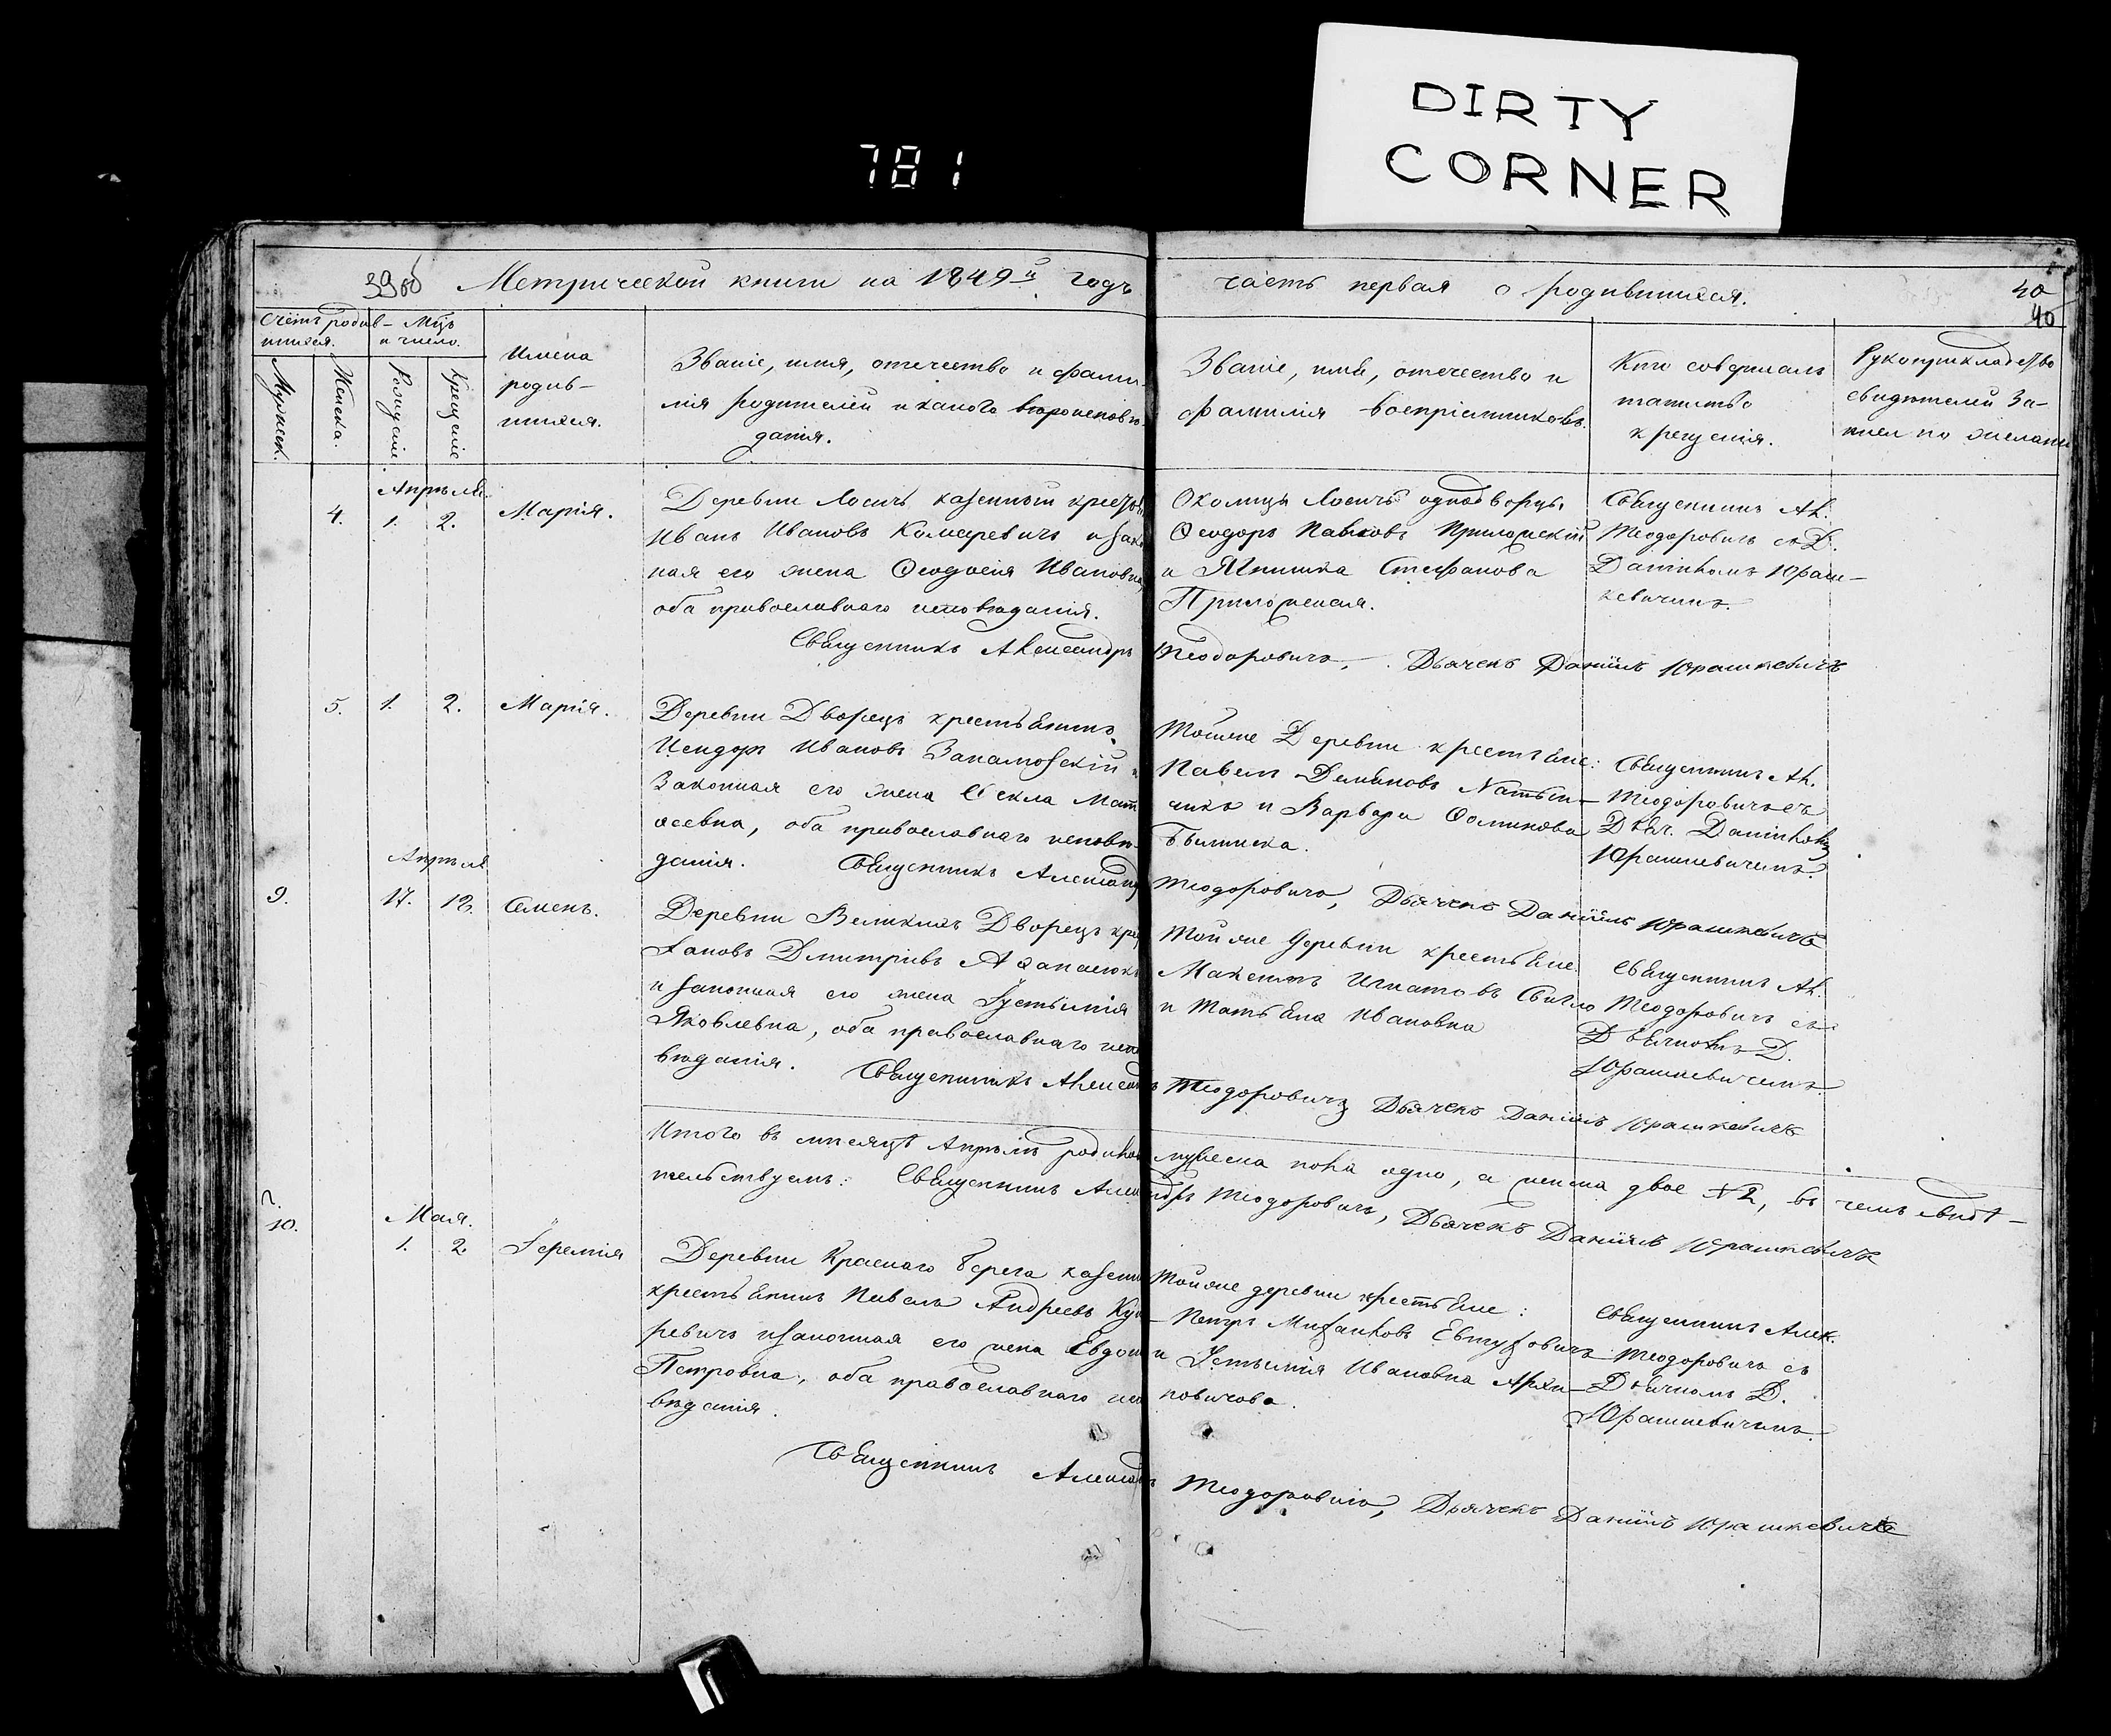 DIRTY
CORNER
781
39об Метрической книги на 1849й годъ
часть первая о родившихся.
40
40
Счётъ родив-
шихся.
Мцъ
и число.
Мужеск.
Женска.
Рожденіе.
Крещеніе
Имена
родив-
шихся.
Званіе, имя, отечество и фами-
лія родителей и какого вѣроисповѣ-
данія.
Званіе, имя, отечество и
фамилія воспріемниковъ.
Кто совершалъ
таинство
крещенія.
Рукоприкладство
свидѣтелей за-
писи по желанію
Апрѣля
4. 1. 2. Марія.
Деревни Лосичъ казенный крестьян
Иванъ Ивановъ Комаревичъ и зако
ная его жена Ѳеодосія Ивановна,
оба православнаго исповѣданія.
Околицы Лосичъ однодворцы
Ѳеодоръ Павловъ
и Стефанова
Священникъ Ал.
Теодоровичъ съ Д.
Даніиломъ Юраш-
кевичемъ.
Священникъ Александръ Теодоровичъ, Дьячекъ Даніилъ Юрашкевичъ
5. 1. 2. Марія.
Деревни Дворецъ крестьянинъ
Исидоръ Ивановъ
Законная его жена Ѳекла Мат
ѳеевна, оба православнаго исповѣ-
данія.
Тойже Деревни крестьяне:
Павелъ Демьяновъ
и Варвара
Священникъ Ал.
Теодоровичъ съ
Дьяч. Даніиломъ
Юрашкевичемъ.
Священникъ Александръ Теодоровичъ, Дьячекъ Даніилъ Юрашкевичъ
Апрѣля
9. 17. 18. Семенъ.
Деревни Великихъ Дворецъ крес
Дмитріевъ Аѳанасюкъ
и законная его жена Іустинія
Яковлевна, оба православнаго испо
вѣданія.
Тойже деревни крестьяне
Максимъ Игнатовъ
и Татьяна Ивановна
Священникъ Ал.
Теодоровичъ съ
Дьячкомъ Д.
Юрашкевичемъ.
Священникъ Александръ Теодоровичъ Дьячекъ Даніилъ Юрашкевичъ
Итого въ мѣсяцѣ Апрѣлѣ родилось мужеска пола одно, а женска двое №2, въ чемъ свидѣ-
тельствуемъ: Священникъ Александръ Теодоровичъ, Дьячекъ Даніилъ Юрашкевичъ
Мая.
10. 1. 2. Іеремія
Деревни Краснаго Берега казен
крестьянинъ Павелъ Андреевъ
ревичъ и законная его жена Евдок
Петровна, оба православнаго испо
вѣданія.
Тойже деревни крестьяне:
Петръ Михайловъ Евтуховичъ
и Іустинія Ивановна Архи-
повичова.
Священникъ Алек.
Теодоровичъ съ
Дьячкомъ Д.
Юрашкевичемъ.
Священникъ Александръ Теодоровичъ, Дьячекъ Даніилъ Юрашкевичъ